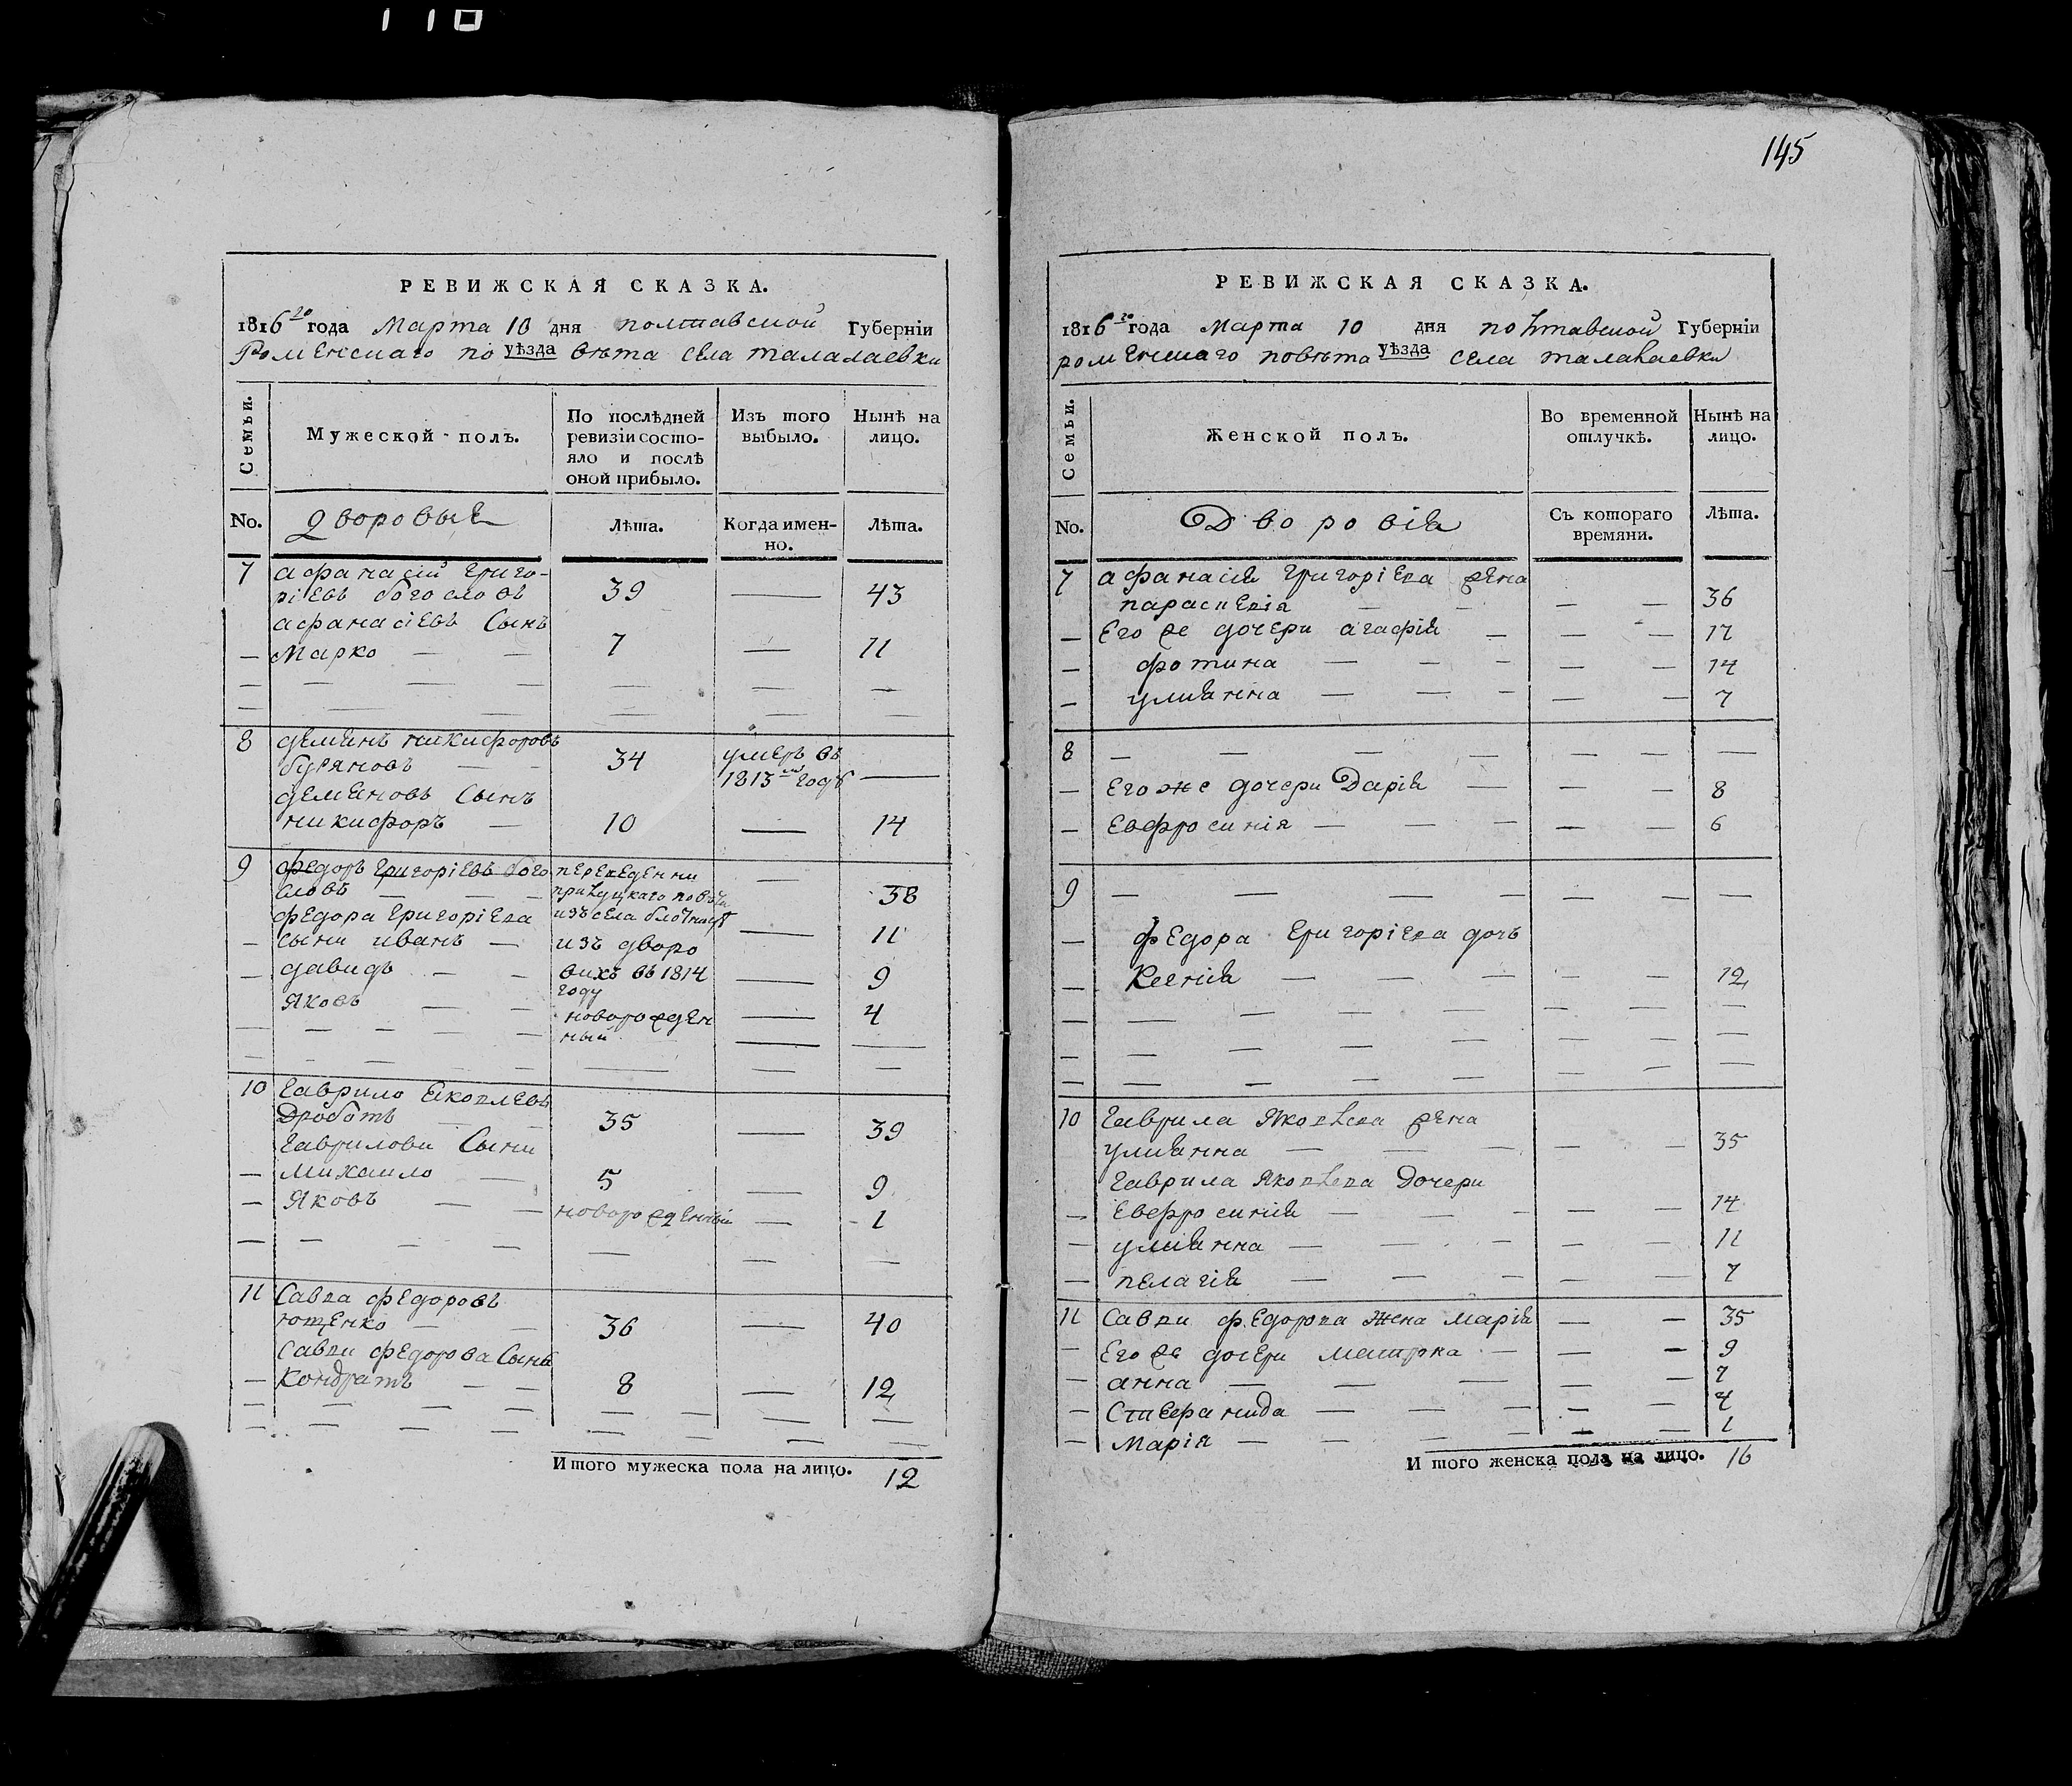 110
РЕВИЖСКАЯ СКАЗКА.
1816го года Марта 10 дня полтавской Губернїи
Роменского по уѣзда вѣта села талалаевки
Семьи.
Мужеской полъ.
По послѣдней ревизїи состо-
яло и послѣ
оной прибыло.
Изъ того выбыло.
Нынѣ на лицо.
No. дворовые Лѣта. Когда имен-
но. Лѣта.
7 афанасий григо-
рiевъ богословъ 39 — 43
афанасiевъ Сынъ
— Марко — — 7 — 11
8 демянъ никифоровъ
буряновъ — — 34 умеръ въ
1813м годѣ —
демяновъ Сынъ
никифоръ — 10 — 14
9 федоръ григорiевъ бого
словъ — — переведенни
прилуцкаго повѣта — 38
федора григорiева изъ села
— сыни иванъ — изъ дворо — 11
— давидъ — — вихъ въ 1814
году — 9
яковъ — — новорожден
ный — 4
10 гаврило яковлевъ
Дроботъ — — 35 — 39
гаврилови Сыни
— михаило — 5 — 9
— яковъ — — новорожденный — 1
11 Савва федоровъ
ющенко — — 36 — 40
Савви федорова Сынъ
— Кондратъ — — 8 — 12
Итого мужеска пола на лицо. 12
145
РЕВИЖСКАЯ СКАЗКА.
1816го года Марта 10 дня полтавской Губернїи
роменскаго повѣта уѣзда села талалаевки
Семьи.
Женской полъ.
Во временной отлучкѣ.
Нынѣ на лицо.
No. Дворовiя Съ котораго
времяни. Лѣта.
7 афанасiя григорiева жена
параскевiя — — — — 36
— Его же дочери агафiя — — — 17
— фотина — — — — — 14
— улиянна — — — — — 7
8 — — — — — — —
— Его же дочери Дарiя — — — — 8
— Евфросинiя — — — — — 6
9 — — — — — — —
— федора григорiева дочъ
— Ксения — — — — — 12
10 гаврила Яковлева жена
улиянна — — — — — 35
гаврила Яковлева Дочери
— Евфросиния — — — — — 14
— улиянна — — — — — 11
— пелагiя — — — — — 7
11 Савви федорова жена марiя — — 35
— Его же дочери матрона — — — 9
— анна — — — — — 7
— Стефанида — — — — — 4
— Марiя — — — — — 1
И того женска пола на лицо. 16